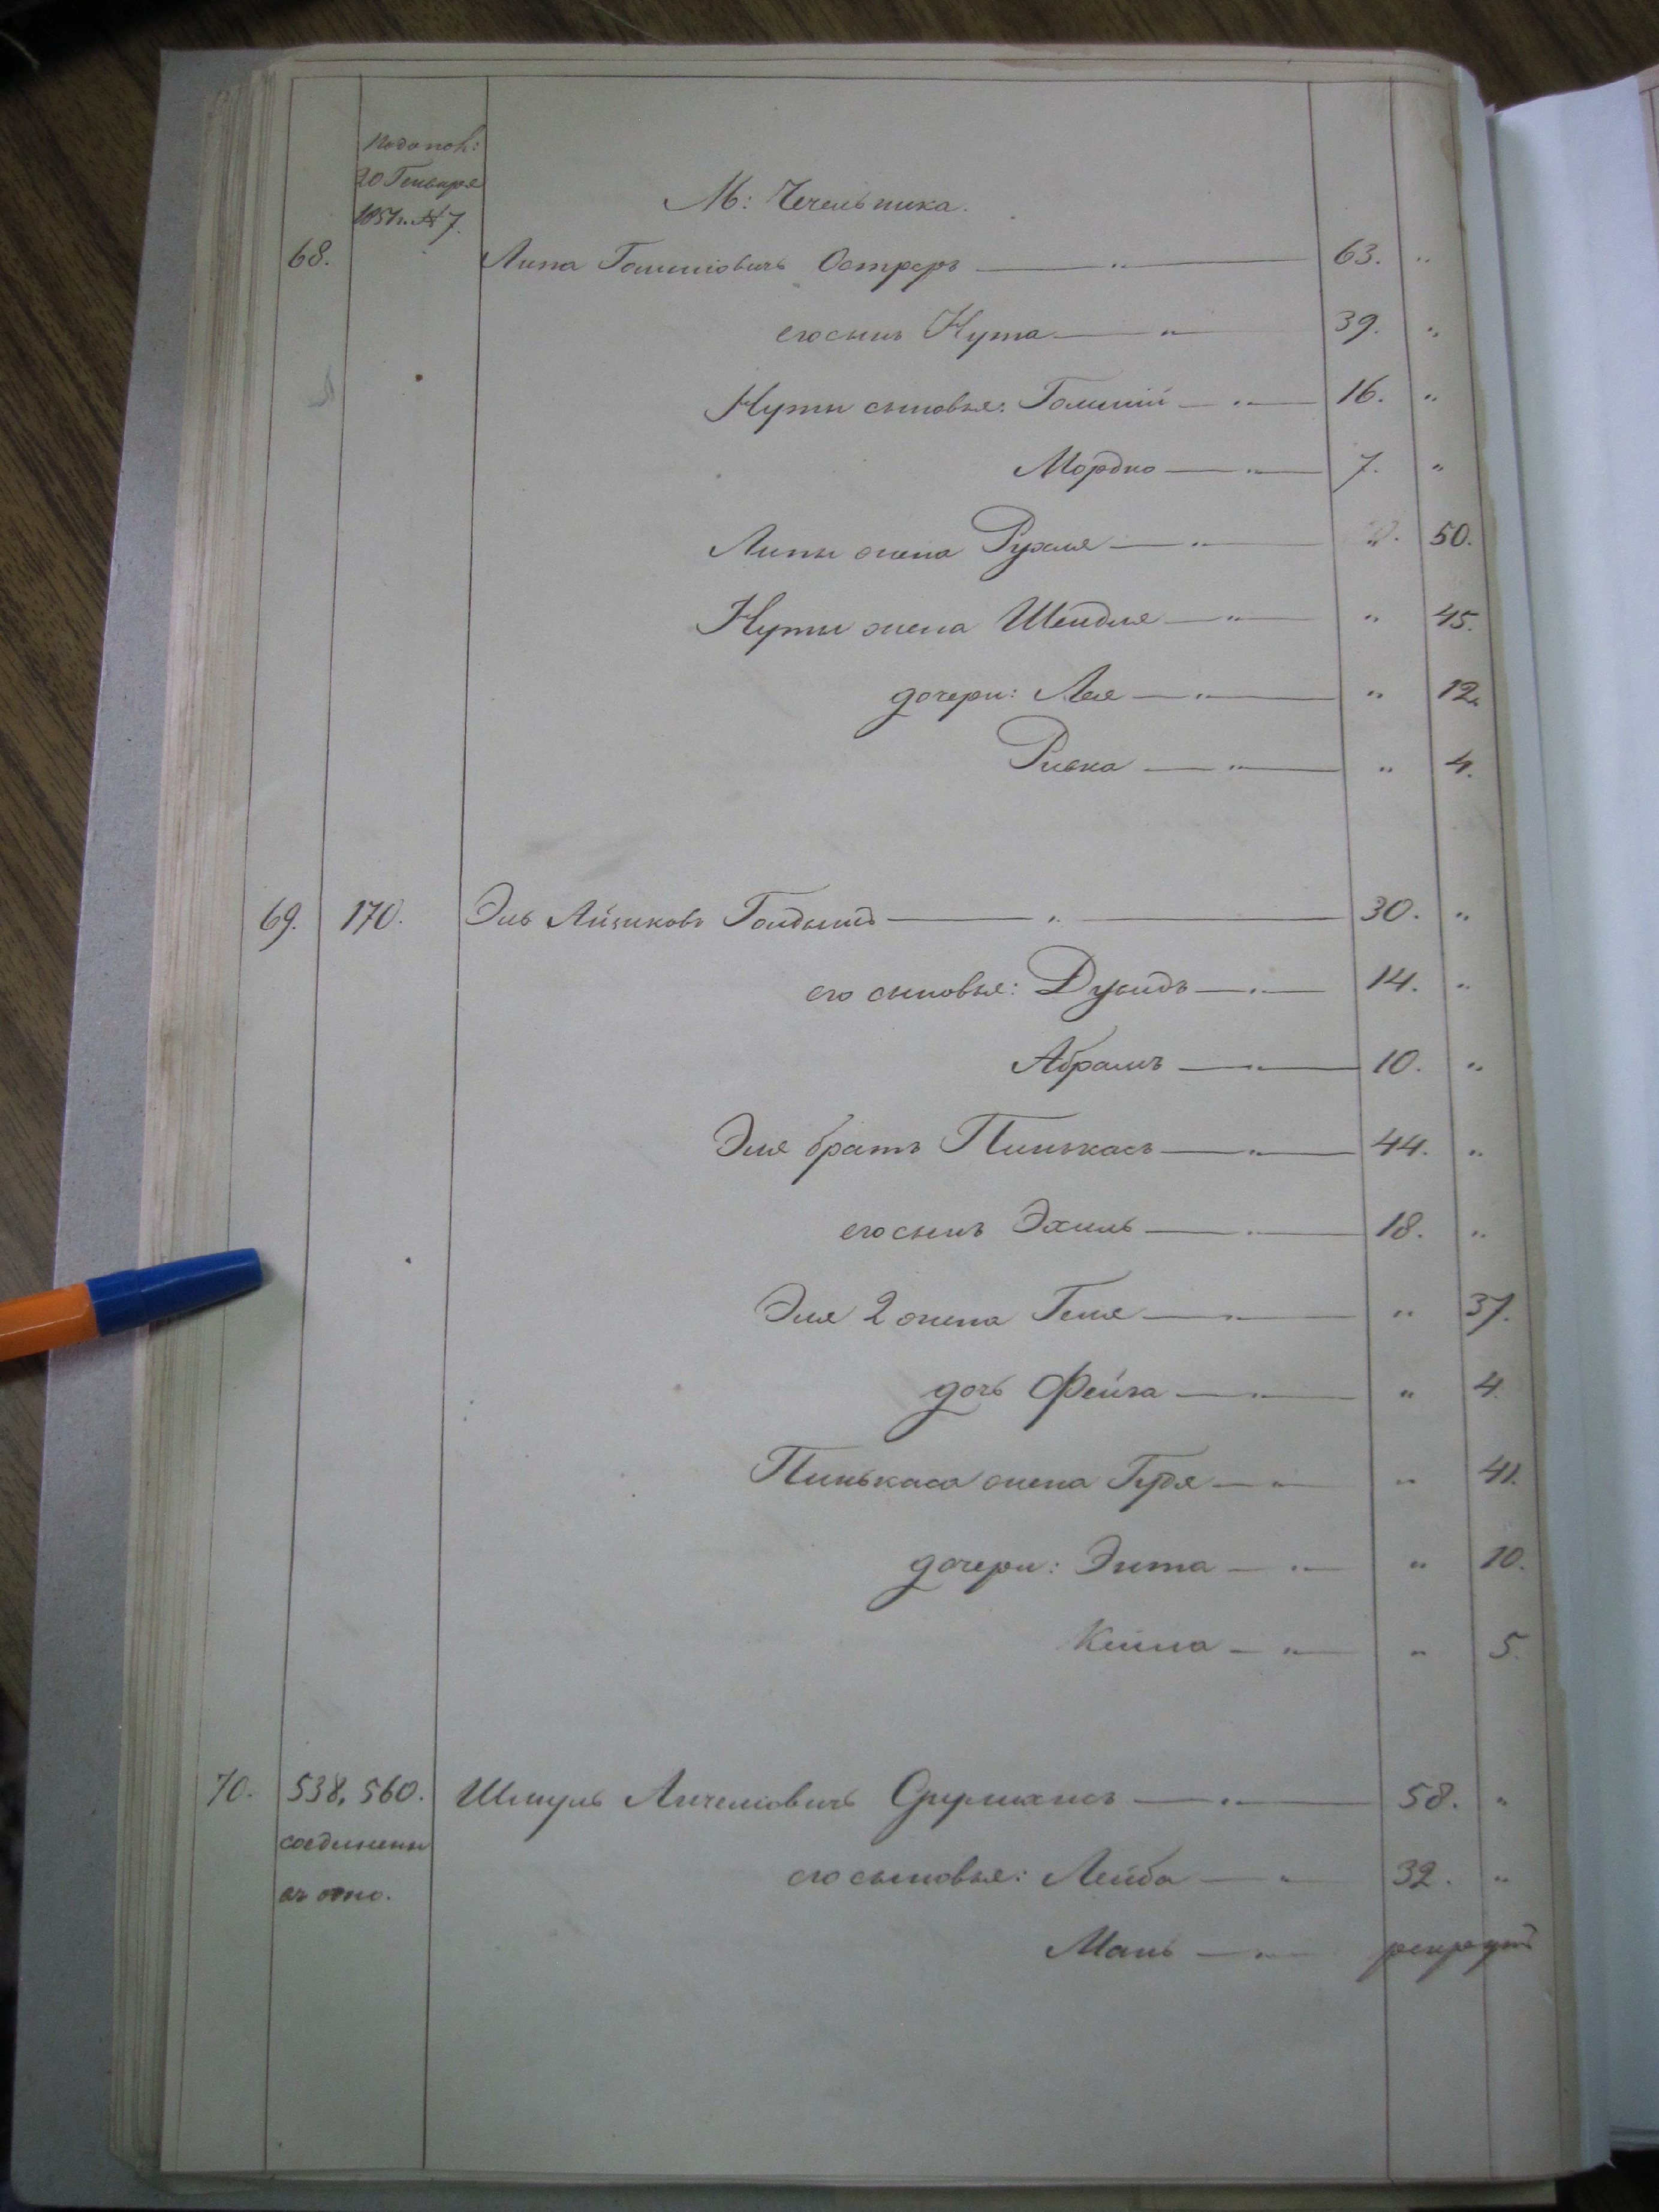 20 Генваря
1851г. № 7.
М: Чечельника.
68. Липа Гошиовичъ Остреръ — " — 63. "
его сынъ Нута — " — 39. "
Нуты сыновья: — " — 16. "
Мордко — " — 7. "
Липы жена Рухля — " — " 50.
Нуты жена Шендля — " — " 45.
дочери: Лея — " — " 12.
Ривка — " — " 4.
69. 170. Эль Айзиковъ — " — 30. "
его сыновья: Дувидъ — " — 14. "
Абрамъ — " — 10. "
Эля братъ Пинькасъ — " — 44. "
его сынъ Эхиль — " — 18. "
Эля 2 жена Геня — " — " 37.
дочь Фейга — " — " 4.
Пинькаса жена — " — " 41.
дочери: Энта — " — " 10.
Кейла — " — " 5.
70. 538, 560. Шмуль Анчелювичъ — " — 58. "
соединены
его сыновья: Лейба — " — 32. "
въ одно.
Мань — " —